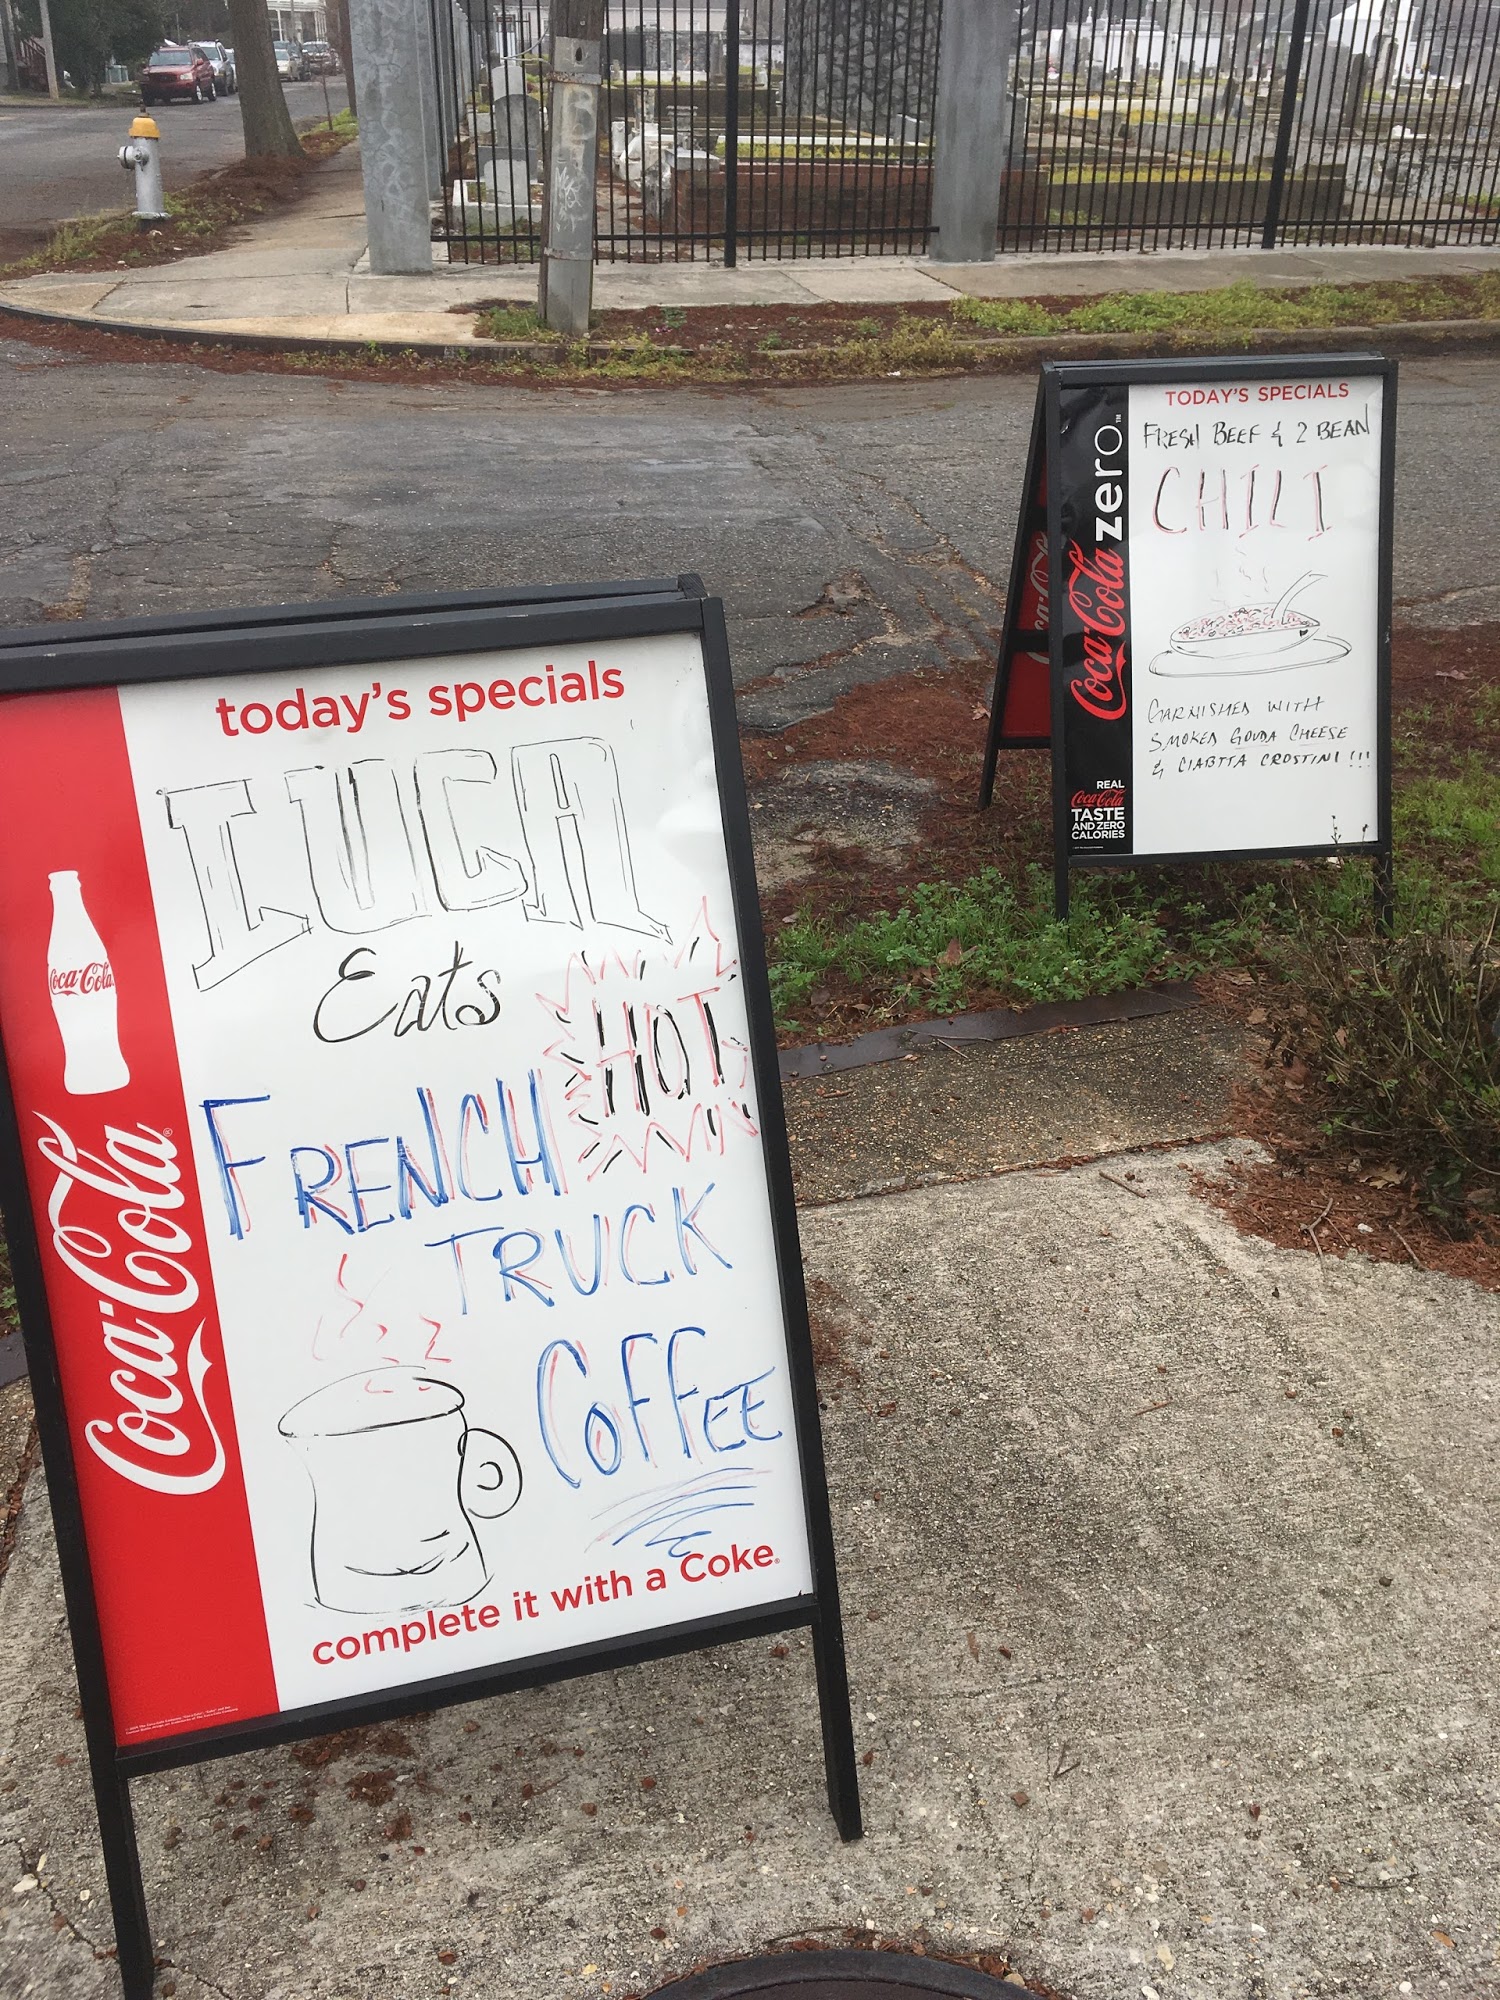 today's specials
LUCA
Eats
HOT
FRENCH
TRUCK
COFFEE
complete it with a Coke.
Coca-Cola
Coca-Cola®
TODAY'S SPECIALS
FRESH BEEF & 2 BEAN
CHILI
GARNISHED WITH
SMOKED GOUDA CHEESE
& CIABTTA CROSTINI !!!
Coca-Cola zero™
REAL
Coca-Cola
TASTE
AND ZERO
CALORIES